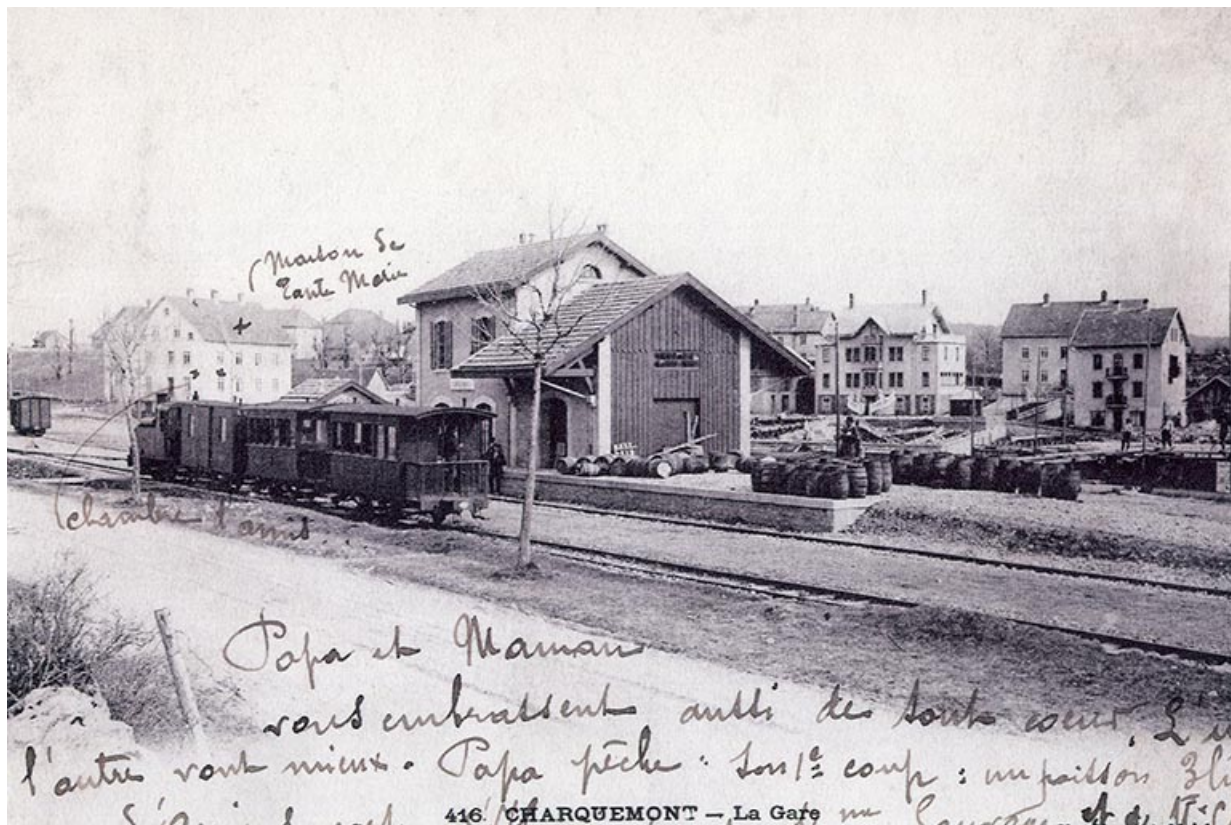 Maison de
Tante Marie
chambre d'amis
Papa et Maman
vous embrassent aussi de tout coeur, L'u
l'autre vont mieux. Papa pêche : son 1e coup : un poisson 3li
416. CHARQUEMONT – La Gare